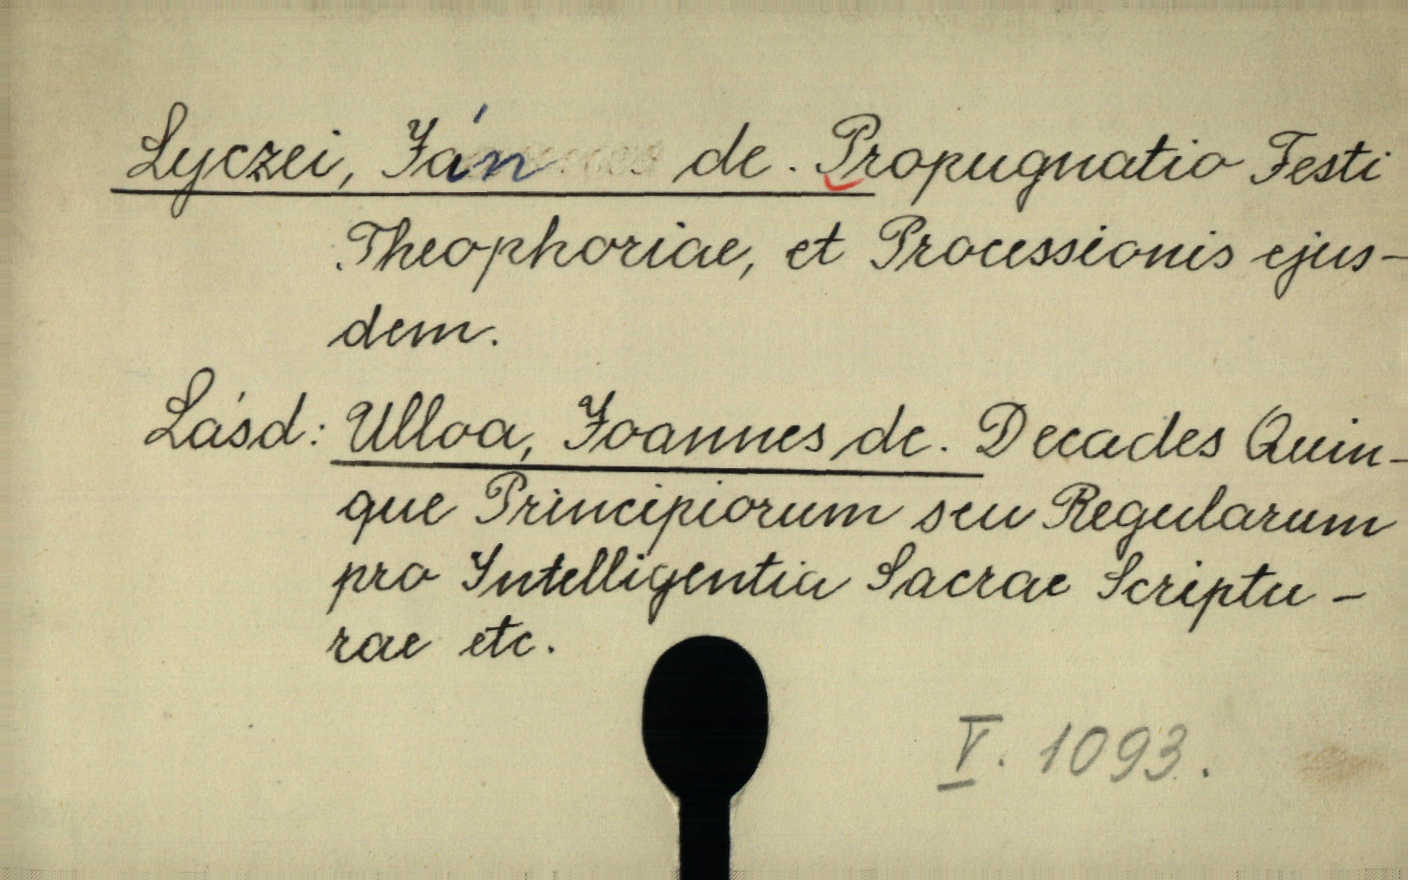 Lyczei, Ján de. Propugnatio Festi
Theophoriae, et Processionis ejus-
dem.
Lásd: Ulloa, Joannes de. Decades Quin-
que Principiorum seu Regularum
pro Intelligentia Sacrae Scriptu-
rae etc.
V. 1093.